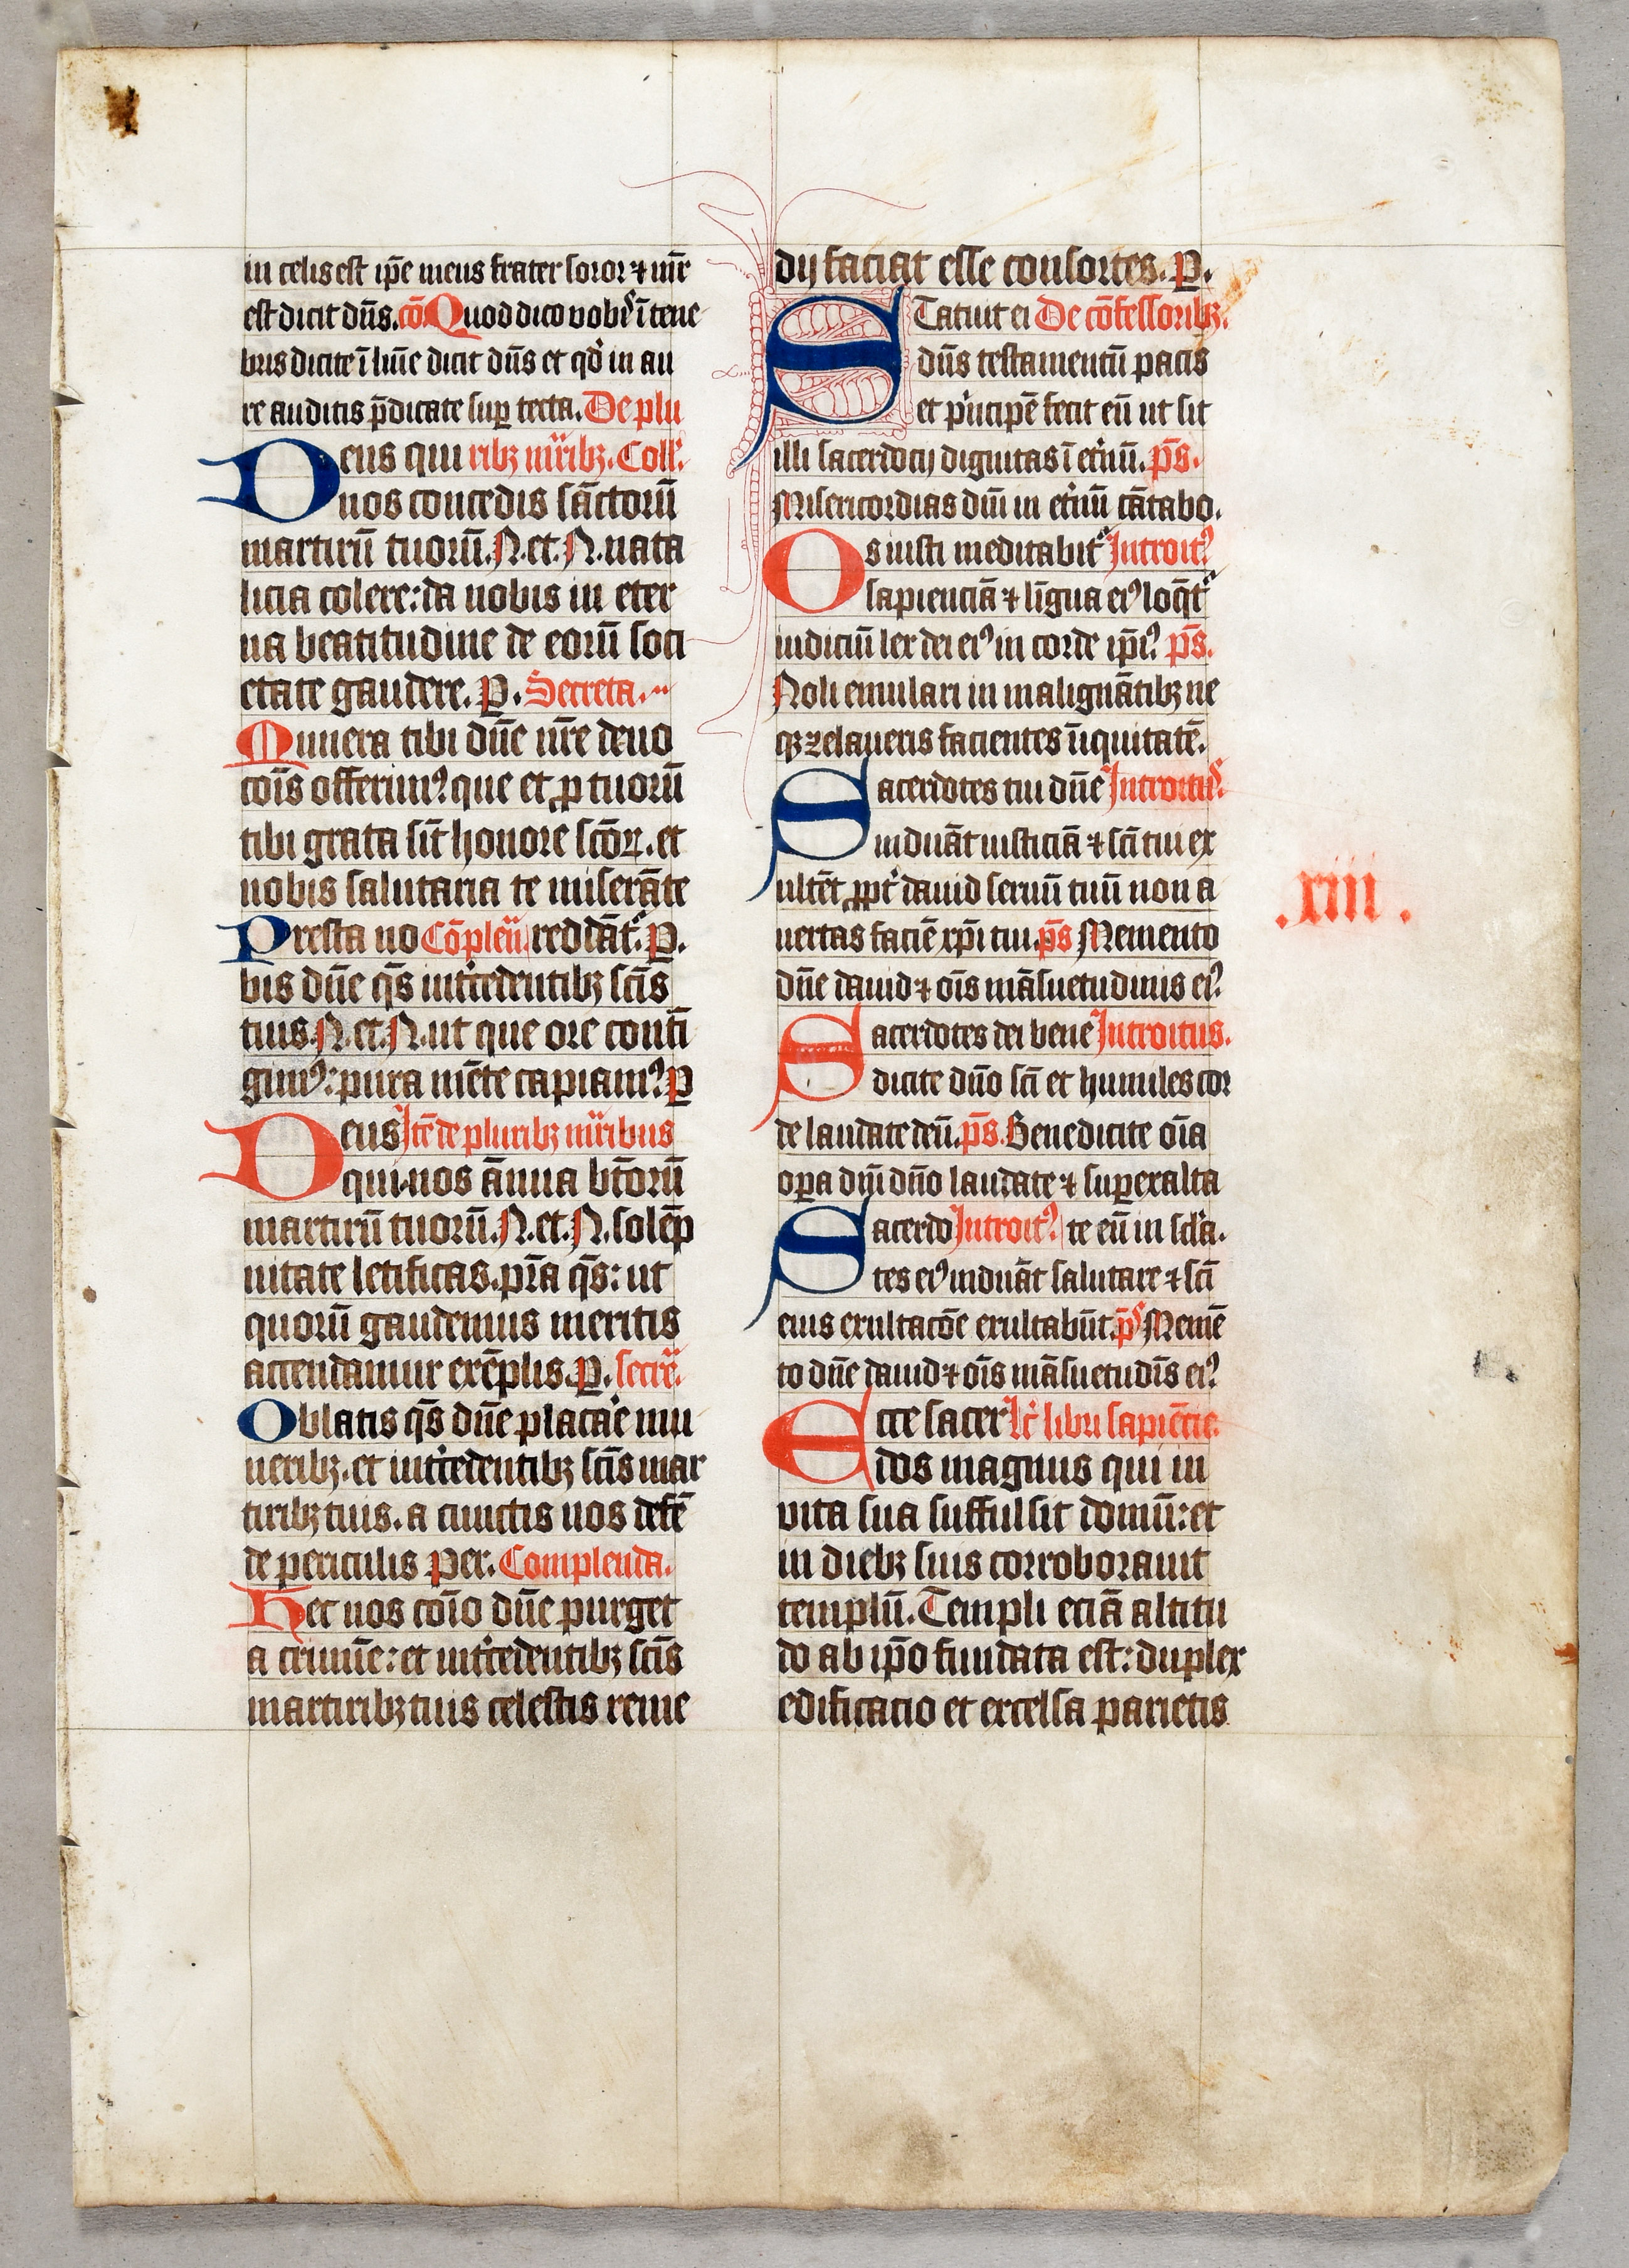 in celis est ip̄e meus frater soror ⁊ mr̄
est dicit dn̄s. cō Quod dico vobꝭ ī tene
bris dicite ī lum̄e dicit dn̄s et qd̓ in au
re auditis p̄dicate suꝑ tecta. De plu
Deus qui ribꝫ mr̄ibꝫ. Coll̓.
nos concedis sāctorū
martirū tuorū. N. et. N. nata
licia colere: da nobis in eter
na beatitudine de eorū soci
etate gaudere. P. Secreta.
Munera tibi dn̄e nr̄e deuo
cōis offerimꝰ que et ꝓ tuorū
tibi grata sīt honore scōꝝ. et
nobis salutaria te miserāte
Presta no Cōplen̄ reddāt᷑. P.
bis dn̄e qs̄ int̓cedentibꝫ scīs
tuis. N. et. N. ut que ore conti
gimꝰ: pura mēte capiamꝰ. P
Deus Itē de pluribꝫ mr̄ibus
qui nos ānua bt̄orū
martirū tuorū. N. et. N. solēp
nitate letificas. p̄ia qs̄: ut
quorū gaudemus meritis
accendamur exēplis. P. secre̓.
Oblatis qs̄ dn̄e placa̓e mu
neribꝫ. et int̓cedentibꝫ scīs mar
tiribꝫ tuis. a cunctis nos defē
de periculis Per. Complenda.
Hec nos cōio dn̄e purget
a crimīe: et int̓cedentibꝫ scīs
martiribꝫ tuis celestis reme
dij faciat esse consortes. P.
STatuit ei De cōfessoribꝫ.
dn̄s testamentū pacis
et pͥncipē fecit eū ut sit
illi sacerdocij dignitas ī et̓nū. pꝰs.
Misericordias dn̄i in et̓nū cātabo.
Os iusti meditabit᷑ Introitꝰ
sapienciā ⁊ līgua eiꝰ loq̄t᷑
iudiciū lex dei eiꝰ in corde ip̄iꝰ p̄s.
Noli emulari in malignātibꝫ ne
qꝫ zelaueris facientes īiquitatē.
Sacerdotes tui dn̄e Introitꝰ.
induāt iusticiā ⁊ scī tui ex
ultēt ꝓpt̓ dauid seruū tuū non a
uertas faciē xp̄i tui. p̄s Memento
dn̄e dauid ⁊ oīs māsuetudinis eiꝰ
Sacerdotes dei bene Introitus.
dicite dn̄o scī et humiles cor
de laudate deū. p̄s. Benedicite oīa
opera dn̄i dn̄o laudate ⁊ suꝑexalta
Sacerdo Introitꝰ te eū in scl̓a.
tes eiꝰ induāt salutare ⁊ scī
eius exultacōe exultabūt. p̄s Memē
to dn̄e dauid ⁊ oīs māsuetudīs eiꝰ
Ecce sacer Lc̄ libri sapiēcie.
dos magnus qui in
vita sua suffulsit domū: et
in diebꝫ suis corroborauit
templū. Templi eciā altitu
do ab ip̄o fundata est: duplex
edificacio et excelsa parietis
.xiii.